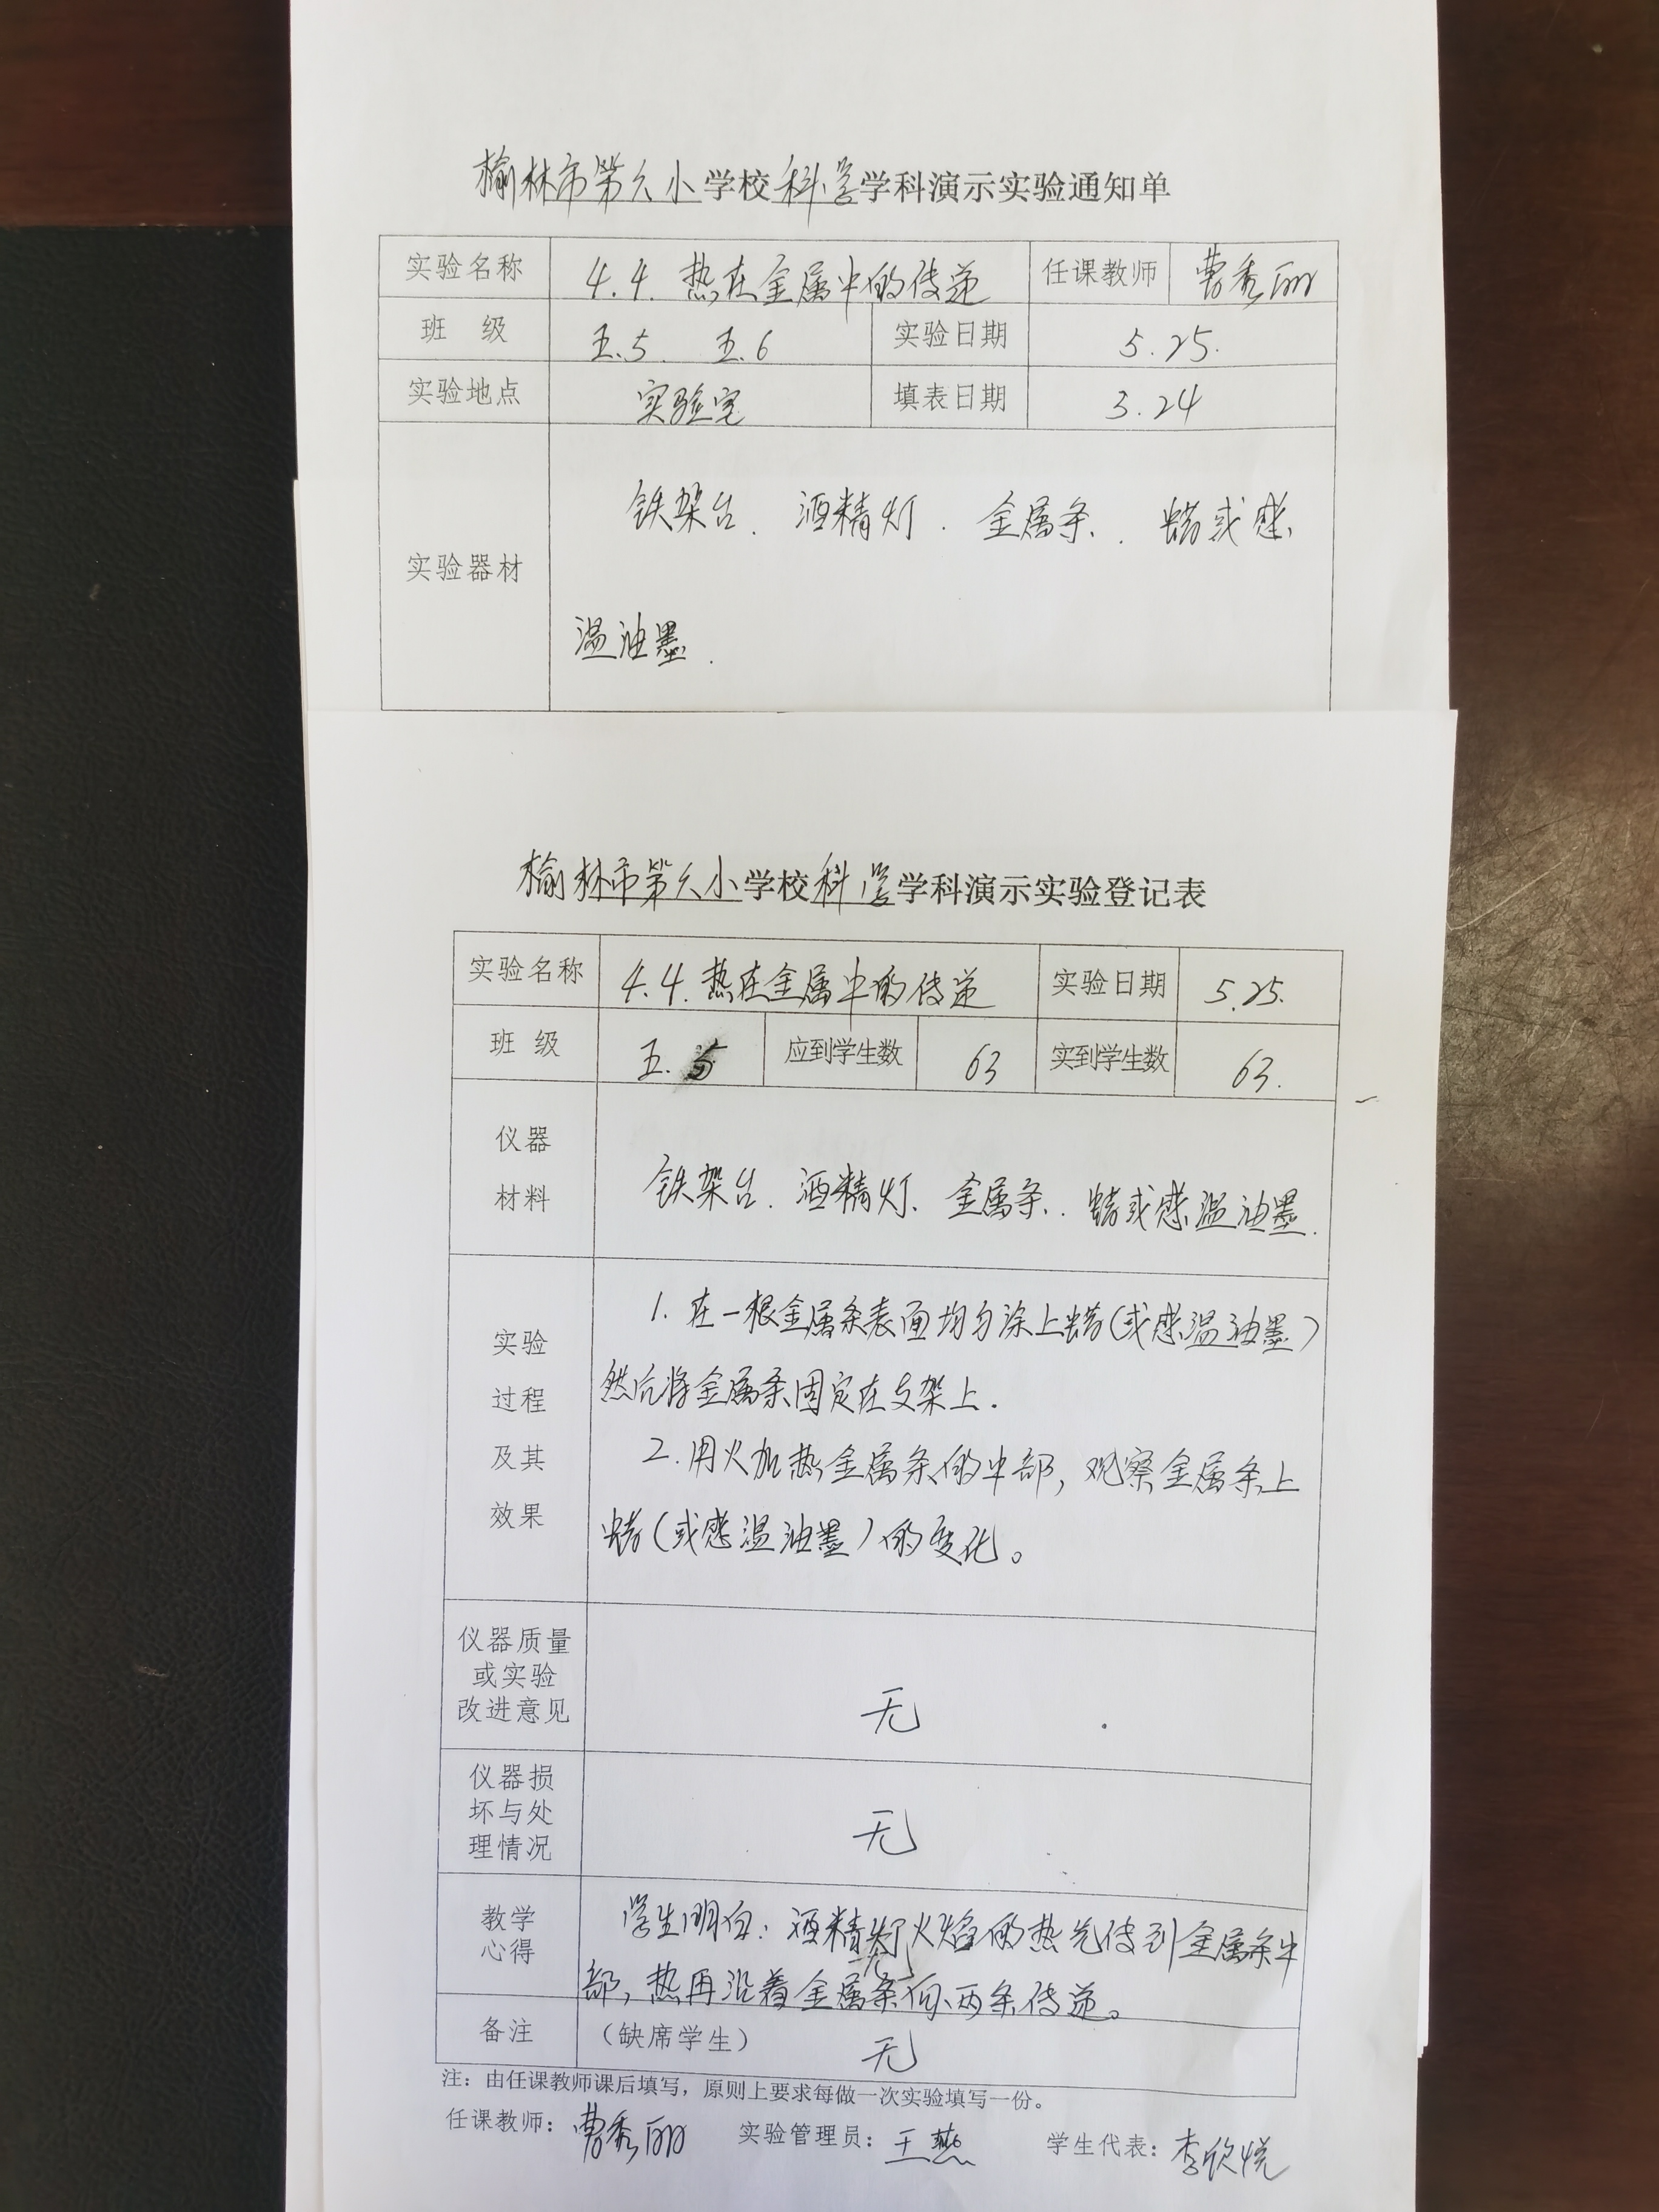 榆林市第六小学校科学学科演示实验通知单
实验名称 4.4.热在金属中的传递 任课教师 曹秀丽
班 级 五.5 五.6 实验日期 5.25.
实验地点 实验室 填表日期 3.24
实验器材 铁架台、酒精灯、金属条、蜡或感
温油墨.
榆林市第六小学校科学学科演示实验登记表
实验名称 4.4.热在金属中的传递 实验日期 5.25.
班 级 五.5 应到学生数 63 实到学生数 63.
仪器
材料
铁架台、酒精灯、金属条、蜡或感温油墨.
实验
过程
及其
效果
1.在一根金属条表面均匀涂上蜡(或感温油墨)
然后将金属条固定在支架上.
2.用火加热金属条的中部,观察金属条上
蜡(或感温油墨)的变化。
仪器质量
或实验
改进意见
无
仪器损
坏与处
理情况
无
教学
心得
学生明白:酒精灯火焰的热先传到金属条中
部,热再沿着金属条向两条传递。
备注 (缺席学生) 无
注:由任课教师课后填写,原则上要求每做一次实验填写一份。
任课教师:曹秀丽 实验管理员:王燕 学生代表:李欣悦